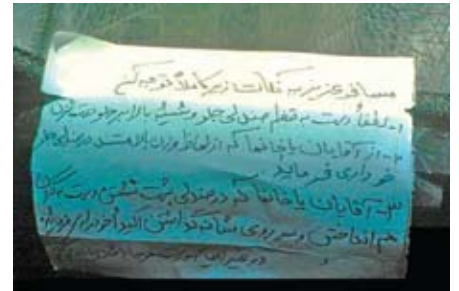 مسافر عزیز به نکات زیر کاملاً توجه کنید
۱- لطفاً دست به قطعه صندلی جلو و شیشه بالابر جلو نزنید
۲- از آقایان یا خانمها که از لحاظ وزن بالا هستند در صندلی جلو
خودداری فرمایید
۳- آقایان یا خانمها که در صندلی پشت نشستن دست به گردن
هم انداختن و سر روی شانه گذاشتن اکیداً خودداری فرمایند
در غیر این صورت